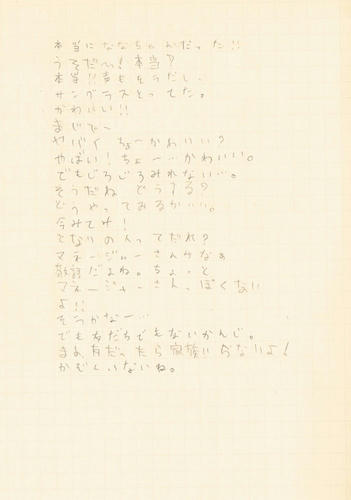 本当にななちゃんだった!!
うそだ〜! 本当?
本当!! 声もそうだし、
サングラスとってた。
かわいい!!
まじで〜
ヤバイ ちょーかわいい?
やばい! ちょー…かわいい。
でもじろじろみれない…。
そうだね どうする?
どうやっておるか…。
今みてみ!
となりの人ってだれ?
マネージャーさんかなぁ
敬語だよね。ちょっと
マネージャーさんっぽくない
よ!!
そうかなー…
でも友だちでもないかんじ。
まぁ、友だったら家族いらないよ!
かもしいないね。